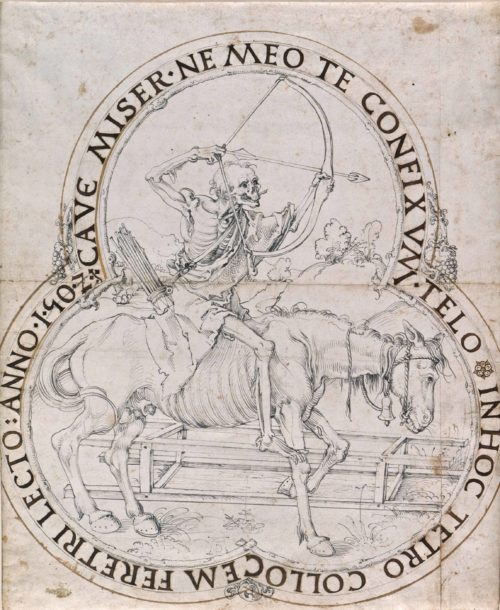 CAVE MISER · NE MEO TE CONFIXVM · TELO
IN HOC TETRO COLLOCEM FERETRI LECTO : ANNO · 1 · 502